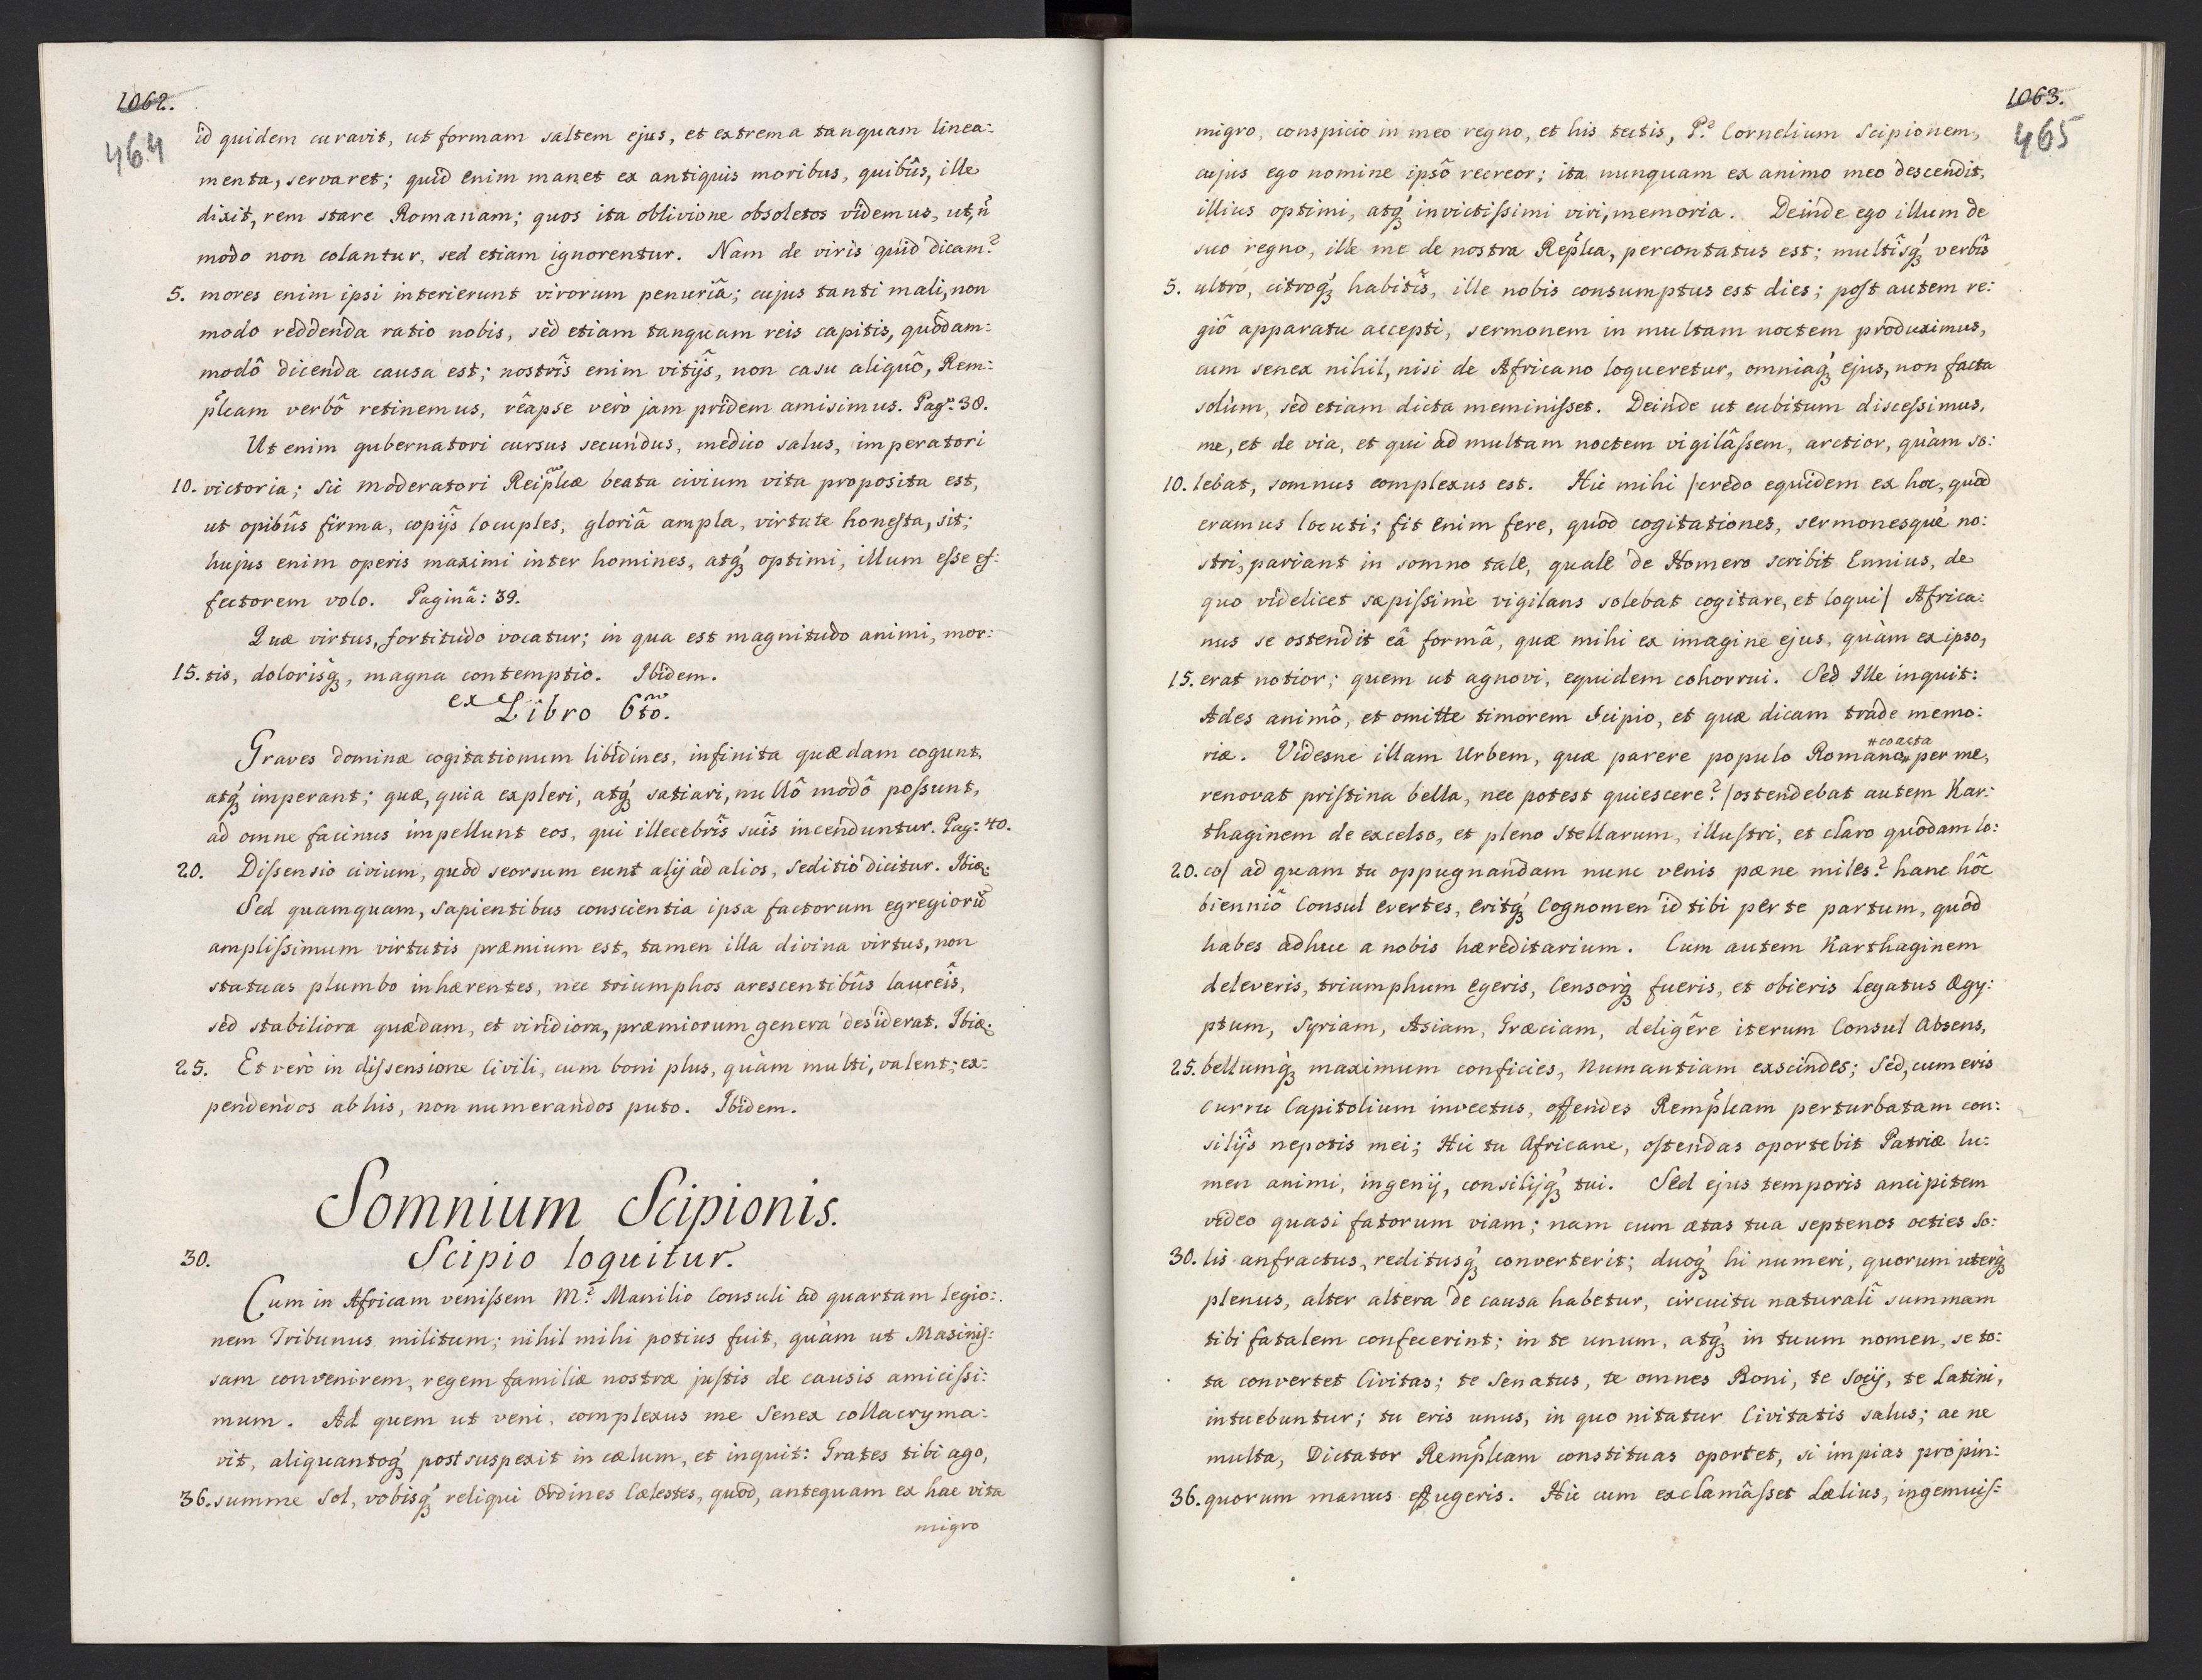 1062.
464
id quidem curavit, ut formam saltem ejus, et extrema tanquam linea:
menta, servaret; quid enim manet ex antiquis moribus, quibûs, ille
dixit, rem stare Romanam; quos ita oblivione obsoletos videmus, ut, n̈
modo non colantur, sed etiam ignorentur. Nam de viris quid dicam?
5. mores enim ipsi interierunt virorum penuriâ; cujus tanti mali, non
modo reddenda ratio nobis, sed etiam tanquam reis capitis, quôdam:
modô dicenda causa est; nostrîs enim vitijs̃, non casu aliquô, Rem:
p̃lcam verbô retinemus, rêapse verò jam pridem amisimus. Pag: 38.
Ut enim gubernatori cursus secundus, medico salus, imperatori
10. victoria; sic moderatori Reip̃lcæ beata civium vita proposita est,
ut opibûs firma, copijs̃ locuples, gloriâ ampla, virtute honesta, sit;
hujus enim operis maximi inter homines, atq́ꝫ optimi, illum esse ef:
fectorem volo. Paginâ: 39.
Quæ virtus, fortitudo vocatur; in qua est magnitudo animi, mor:
15. tis, dolorisq́ꝫ, magna contemptio. Ibidem.
ex Libro 6to.
Graves dominæ cogitationum libidines, infinita quædam cogunt,
atq́ꝫ imperant; quæ, quia expleri, atq́ꝫ satiari, nullô modô possunt,
ad omne facinus impellunt eos, qui illecebrîs suîs incenduntur. Pag: 40.
20. Dissensio civium, quòd seorsum eunt alij ad alios, seditio dicitur. Ibiđ.
Sed quamquam, sapientibus conscientia ipsa factorum egregiorũ
amplissimum virtutis præmium est, tamen illa divina virtus, non
statuas plumbo inhærentes, nec triumphos arescentibûs laureîs,
sed stabiliora quædam, et viridiora, præmiorum genera desiderat. Ibiđ.
25. Et verò in dissensione Civili, cum boni plus, quàm multi, valent; ex:
pendendos ab his, non numerandos puto. Ibidem.
Somnium Scipionis.
30. Scipio loquitur.
Cum in Africam venissem M.º Manilio Consuli ad quartam legio:
nem Tribunus militum; nihil mihi potius fuit, quàm ut Masinis:
sam convenirem, regem familiæ nostræ justis de causis amicissi:
mum. Ad quem ut veni, complexus me Senex collacryma:
vit, aliquantoq́ꝫ post suspexit in cælum, et inquit: Grates tibi ago,
36. summe Sol, vobisq́ꝫ reliqui Ordines Cælestes, quòd, antequam ex hac vita
migro
1063.
465
migro, conspicio in meo regno, et his tectis, P.º Cornelium Scipionem,
cujus ego nomine ipsô recreor; ita nunquam ex animo meo descendit,
illius optimi, atq́ꝫ invictissimi viri, memoria. Deinde ego illum de
suo regno, ille me de nostra Rep̃lca, percontatus est; multîsq́ꝫ verbîs
5. ultro, citroq́ꝫ habitîs, ille nobis consumptus est dies; post autem re:
giô apparatu accepti, sermonem in multam noctem produximus,
cum senex nihil, nisi de Africano loqueretur, omniaq́ꝫ ejus, non facta
solùm, sed etiam dicta meminisset. Deinde ut cubitum discessimus,
me, et de via, et qui ad multam noctem vigilâssem, arctior, quàm so:
10. lebat, somnus complexus est. Hic mihi /credo equidem ex hoc, quod
eramus locuti; fit enim fere, quòd cogitationes, sermonesquè no:
stri, pariant in somno tale, quale de Homero scribit Ennius, de
quo videlicet sæpissimè vigilans solebat cogitare, et loqui/ Africa:
nus se ostendit eâ formâ, quæ mihi ex imagine ejus, quàm ex ipso,
15. erat notior; quem ut agnovi, equidem cohorrui. Sed Ille inquit:
Ades animô, et omitte timorem Scipio, et quæ dicam trade memo:
riæ. Videsne illam Urbem, quæ parere populo Romano # #coacta per me,
renovat pristina bella, nec potest quiescere? /ostendebat autem Kar:
thaginem de excelso, et pleno stellarum, illustri, et claro quôdam lo:
20. co/ ad quam tu oppugnandam nunc venis pæne miles? hanc hôc
bienniô Consul evertes, eritq́ꝫ Cognomen id tibi per te partum, quod
habes adhuc a nobis hæreditarium. Cum autem Karthaginem
deleveris, triumphum egeris, Censorq́ꝫ fueris, et obieris Legatus Ægy:
ptum, Syriam, Asiam, Græciam, deligêre iterum Consul absens,
25. bellumq́ꝫ maximum conficies, Numantiam exscindes; Sed, cum eris
curru Capitolium invectus, offendes Remp̃lcam perturbatam con:
silijs̃ nepotis mei; Hic tu Africane, ostendas oportebit Patriæ lu:
men animi, ingenij, consilijq́ꝫ tui. Sed ejus temporis ancipitem
video quasi fatorum viam; nam cum ætas tua septenos octies so:
30. lis anfractus, reditusq́ꝫ converterit; duoq́ꝫ hi numeri, quorum uterq́ꝫ
plenus, alter altera de causa habetur, circuitu naturali summam
tibi fatalem confecerint; in te unum, atq́ꝫ in tuum nomen, se to:
ta convertet Civitas; te Senatus, te omnes Boni, te Socij, te Latini,
intuebuntur; tu eris unus, in quo nitatur Civitatis salus; ac ne
multa, Dictator Remp̃lcam constituas oportet, si impias propin:
36. quorum manus effugeris. Hic cum exclamâsset Lælius, ingemuis: